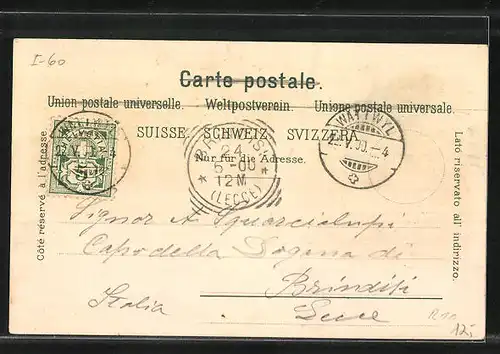 I-60
Carte postale.
Union postale universelle. Weltpostverein. Unione postale universale.
SUISSE. SCHWEIZ. SVIZZERA.
Nur für die Adresse.
Côté réservé à l'adresse.
Lato riservato all' indirizzo.
WATTWYL
23.V.00.-4
BRINDISI
24
5-00
12M
(LECCE)
Signor A Squarcialupi
Capo della Dogana di
Brindisi
Italia
Lecce
12,-